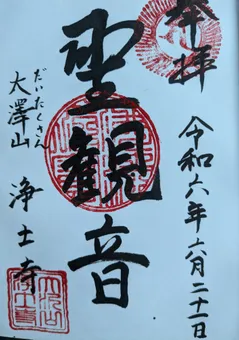 奉拝
令和六年六月二十一日
聖観音
だいたくさん
大澤山
浄土寺